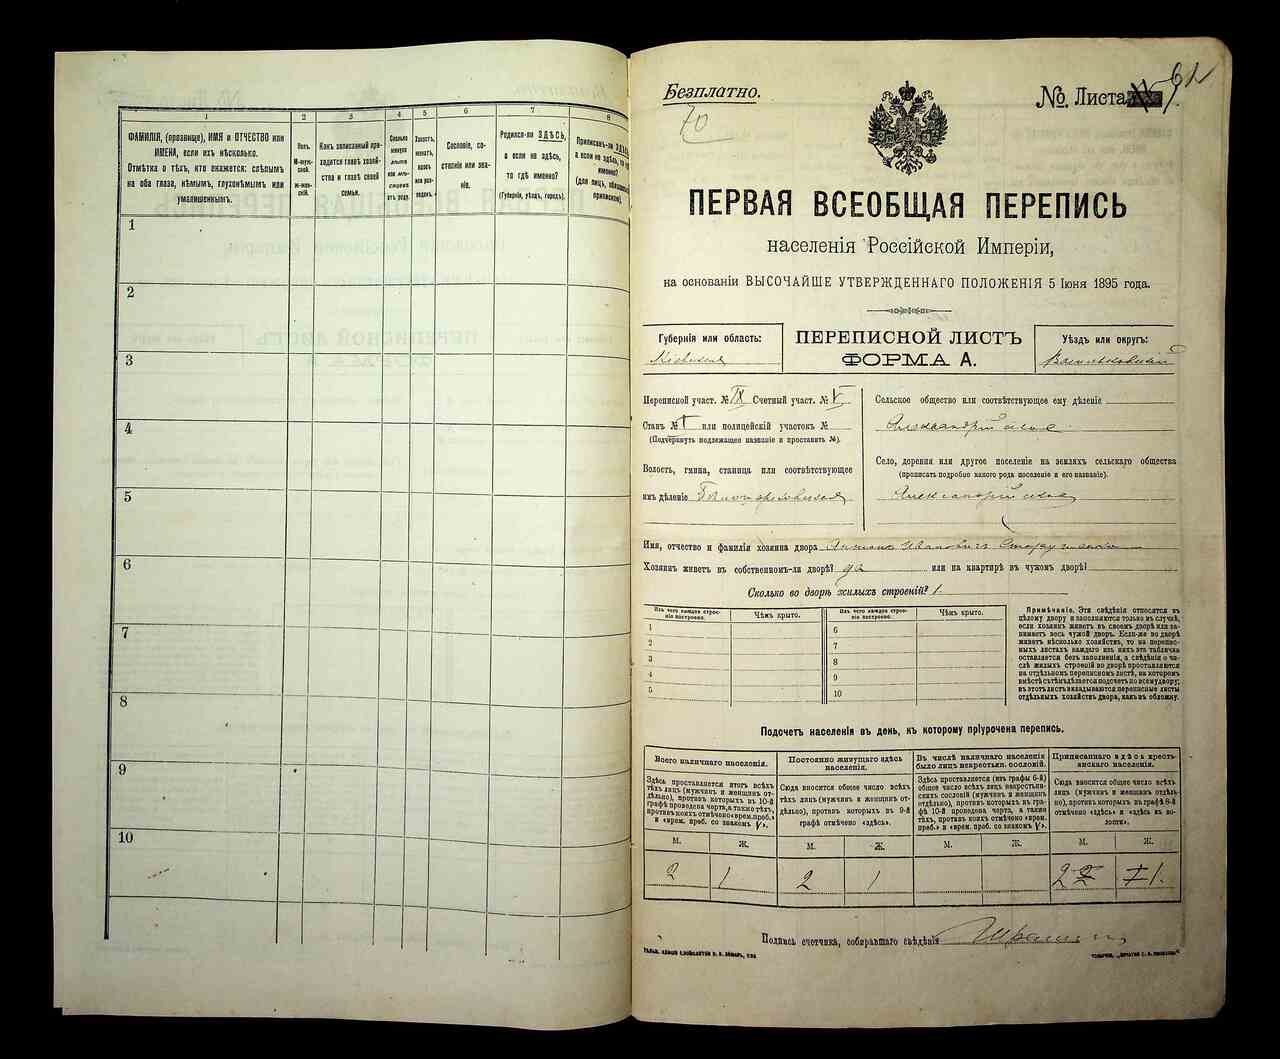 1
2
3
4
5
6
7
8
ФАМИЛІЯ, (прозвище), ИМЯ и ОТЧЕСТВО или
ИМЕНА, если ихъ нѣсколько.
Отмѣтка о тѣхъ, кто окажется: слѣпымъ
на оба глаза, нѣмымъ, глухонѣмымъ или
умалишеннымъ.
Полъ.
М-муж-
ской.
Ж-жен-
скій.
Какъ записанный при-
ходится главѣ хозяй-
ства и главѣ своей
семьи.
Сколько
минуло
лѣтъ
или мѣ-
сяцевъ
отъ роду.
Сословіе, со-
стояніе или зва-
ніе.
Родился-ли ЗДѢСЬ,
а если не здѣсь,
то гдѣ именно?
(Губернія, уѣздъ, городъ).
Приписанъ-ли ЗДѢСЬ,
а если не здѣсь, то гдѣ
именно?
(для лицъ, обязанныхъ
припискою).
1
2
3
4
5
6
7
8
9
10
Безплатно.
70
№ Листа
ПЕРВАЯ ВСЕОБЩАЯ ПЕРЕПИСЬ
населенія Россійской Имперіи,
на основаніи ВЫСОЧАЙШЕ УТВЕРЖДЕННАГО ПОЛОЖЕНІЯ 5 Іюня 1895 года.
Губернія или область:
Кіевская
ПЕРЕПИСНОЙ ЛИСТЪ
ФОРМА А.
Уѣздъ или округъ:
Васильковскій
Переписной участ. № IX Счетный участ. № V
Станъ № 1 или полицейскій участокъ №
(Подчеркнуть подлежащее названіе и проставить №).
Волость, гмина, станица или соотвѣтствующее
имъ дѣленіе
Сельское общество или соотвѣтствующее ему дѣленіе
Село, деревня или другое поселеніе на земляхъ сельскаго общества
(прописать подробно какого рода поселеніе и его названіе).
Имя, отчество и фамилія хозяина двора Антонъ Ивановичъ
Хозяинъ живетъ въ собственномъ-ли дворѣ? да или на квартирѣ въ чужомъ дворѣ?
Сколько во дворѣ жилыхъ строеній? 1.
Изъ чего каждое строе-
ніе построено.
Чѣмъ крыто.
Изъ чего каждое строе-
ніе построено.
Чѣмъ крыто.
1
2
3
4
5
6
7
8
9
10
Примѣчаніе. Эти свѣдѣнія относятся къ
цѣлому двору и заполняются только въ случаѣ,
если хозяинъ живетъ въ своемъ дворѣ или за-
нимаетъ весь чужой дворъ. Если-же во дворѣ
живетъ нѣсколько хозяйствъ, то на перепис-
ныхъ листахъ каждаго изъ нихъ эта табличка
оставляется безъ заполненія, а свѣдѣнія о чи-
слѣ жилыхъ строеній во дворѣ проставляются
на отдѣльномъ переписномъ листѣ, на которомъ
вмѣстѣ съ тѣмъ дѣлается подсчетъ по всему двору;
въ этотъ листъ вкладываются переписные листы
отдѣльныхъ хозяйствъ двора, какъ въ обложку.
Подсчетъ населенія въ день, къ которому пріурочена перепись.
Всего наличнаго населенія.
Здѣсь проставляется итогъ всѣхъ
тѣхъ лицъ (мужчинъ и женщинъ от-
дѣльно), противъ которыхъ въ 10-й
графѣ проведена черта, а также тѣхъ,
противъ коихъ отмѣчено «врем. проб.»
и «врем. проб. со знакомъ V».
Постоянно живущаго здѣсь
населенія.
Сюда вносится общее число всѣхъ
тѣхъ лицъ (мужчинъ и женщинъ от-
дѣльно), противъ которыхъ въ 9-й
графѣ отмѣчено «здѣсь».
Въ числѣ наличнаго населенія
было лицъ некрестьян. сословій.
Здѣсь проставляется (изъ графы 6-й)
общее число всѣхъ лицъ некрестьян-
скихъ сословій (мужчинъ и женщинъ
отдѣльно), противъ которыхъ въ гра-
фѣ 10-й проведена черта, а также
тѣхъ, противъ коихъ отмѣчено «врем.
проб.» и «врем. проб. со знакомъ V».
Приписаннаго здѣсь кресть-
янскаго населенія.
Сюда вносится общее число всѣхъ
лицъ (мужчинъ и женщинъ отдѣль-
но), противъ которыхъ въ графѣ 8-й
отмѣчено «здѣсь» и «здѣсь въ во-
лости».
М. Ж. М. Ж. М. Ж. М. Ж.
2 1 2 1 2 1.
Подпись счетчика, собиравшаго свѣдѣнія